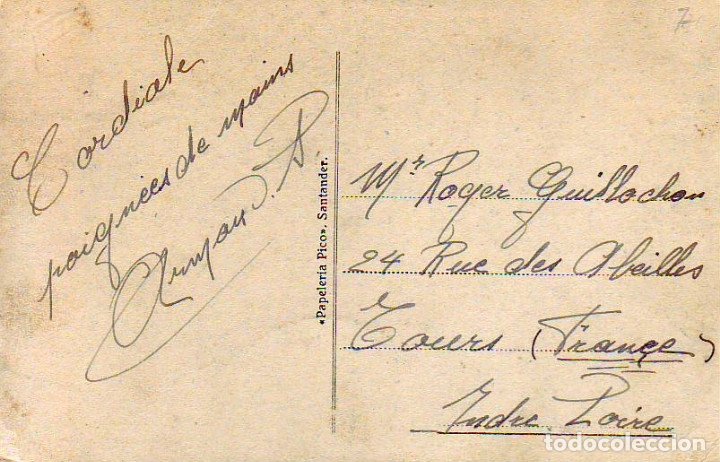 Cordiale
poignées de mains
Armand. P.
«Papelería Pico». Santander.
7
Mr Roger Guillochon
24 Rue des Abeilles
Tours (France)
Indre Loire
todocoleccion.net